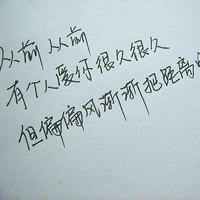 从前 从前
有个人爱你很久很久
但偏偏风渐渐把距离